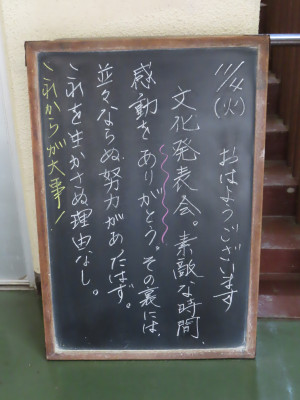 11/4(火) おはようございます
文化発表会。素敵な時間、
感動をありがとう。その裏には、
並々ならぬ努力があたはず。
これを生かさぬ理由なし。
これからが大事!